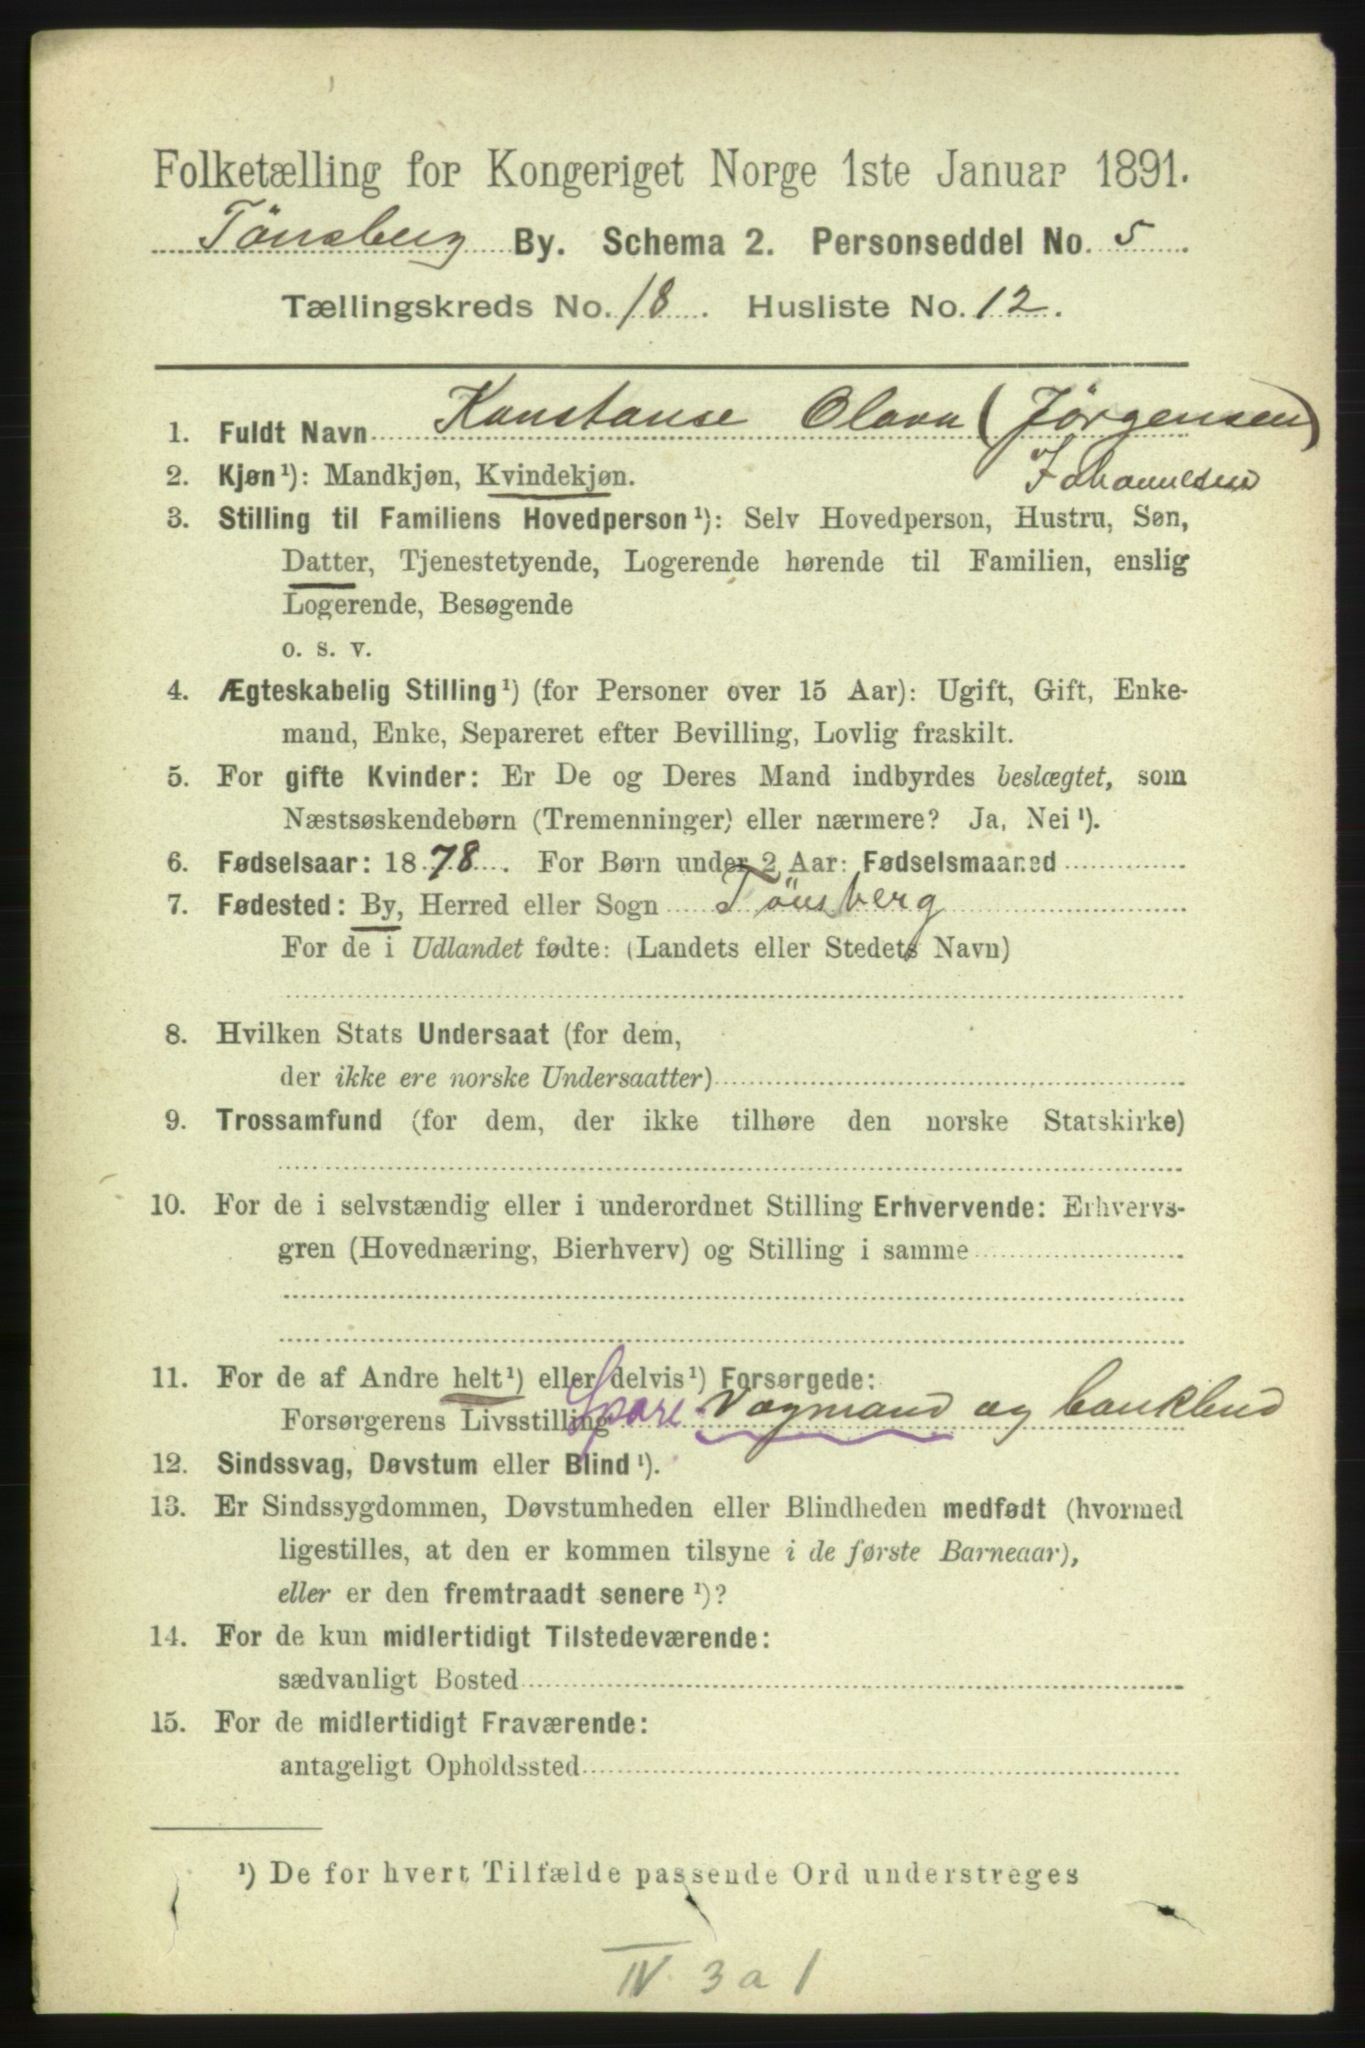 Folketælling for Kongeriget Norge 1ste Januar 1891.
Tönsberg By. Schema 2. Personseddel No. 5
Tællingskreds No. 18. Husliste No. 12.
1. Fuldt Navn Konstanse Olava (Jörgensen)
Johannesen
2. Kjøn¹): Mandkjøn, Kvindekjøn.
3. Stilling til Familiens Hovedperson¹): Selv Hovedperson, Hustru, Søn,
Datter, Tjenestetyende, Logerende hørende til Familien, enslig
Logerende, Besøgende
o. s. v.
4. Ægteskabelig Stilling¹) (for Personer over 15 Aar): Ugift, Gift, Enke-
mand, Enke, Separeret efter Bevilling, Lovlig fraskilt.
5. For gifte Kvinder: Er De og Deres Mand indbyrdes beslægtet, som
Næstsøskendebørn (Tremenninger) eller nærmere? Ja, Nei¹).
6. Fødselsaar: 1878. For Børn under 2 Aar: Fødselsmaaned
7. Fødested: By, Herred eller Sogn Tönsberg
For de i Udlandet fødte: (Landets eller Stedets Navn)
8. Hvilken Stats Undersaat (for dem,
der ikke ere norske Undersaatter)
9. Trossamfund (for dem, der ikke tilhøre den norske Statskirke)
10. For de i selvstændig eller i underordnet Stilling Erhvervende: Erhvervs-
gren (Hovednæring, Bierhverv) og Stilling i samme
11. For de af Andre helt¹) eller delvis¹) Forsørgede:
Forsørgerens Livsstilling Spare Vægmand og bankbud
12. Sindssvag, Døvstum eller Blind¹).
13. Er Sindssygdommen, Døvstumheden eller Blindheden medfødt (hvormed
ligestilles, at den er kommen tilsyne i de første Barneaar),
eller er den fremtraadt senere¹)?
14. For de kun midlertidigt Tilstedeværende:
sædvanligt Bosted
15. For de midlertidigt Fraværende:
antageligt Opholdssted
¹) De for hvert Tilfælde passende Ord understreges
IV. 3 a 1